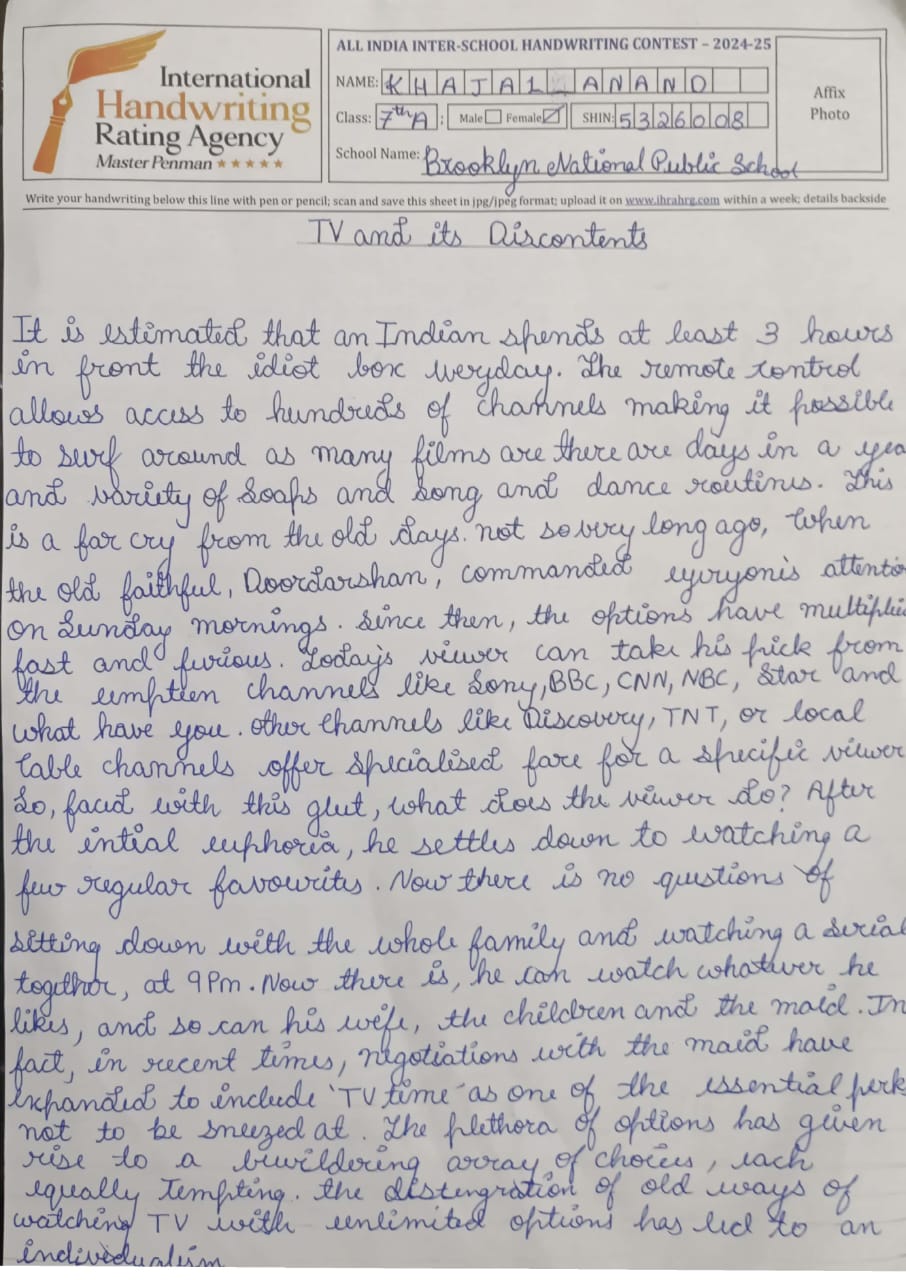 International
Handwriting
Rating Agency
Master Penman ★★★★★
ALL INDIA INTER-SCHOOL HANDWRITING CONTEST – 2024-25
NAME: KHAJAL ANAND
Class: 7th A : Male Female SHIN: 5326008
School Name: Brooklyn National Public School
Affix
Photo
Write your handwriting below this line with pen or pencil; scan and save this sheet in jpg/jpeg format; upload it on www.ihrahrg.com within a week; details backside
TV and its Discontents
It is estimated that an Indian spends at least 3 hours
in front the idiot box everyday. The remote control
allows access to hundreds of channels making it possible
to surf around as many films are there are days in a yea
and variety of soaps and song and dance routines. This
is a far cry from the old days. not so very long ago, when
the old faithful, Doordarshan, commanded eyeryonis attentio
on Sunday mornings. Since then, the options have multiplie
fast and furious. Today's viewer can take his pick from
the umpteen channels like Sony, BBC, CNN, NBC, Star and
what have you. Other channels like Discovery, TNT, or local
cable channels offer specialised fare for a specific viewer
So, faced with this glut, what does the viewer do? After
the intial euphoria, he settles down to watching a
few regular favourites. Now there is no questions of
sitting down with the whole family and watching a serial
together, at 9Pm. Now there is, he can watch whatever he
likes, and so can his wife, the children and the maid. In
fact, in recent times, negotiations with the maid have
expanded to include 'TV time' as one of the essential perk
not to be sneezed at. The plethora of options has given
rise to a bewildering array of choices, each
equally tempting. the distengration of old ways of
watching TV with unlimited options has led to an
individualism